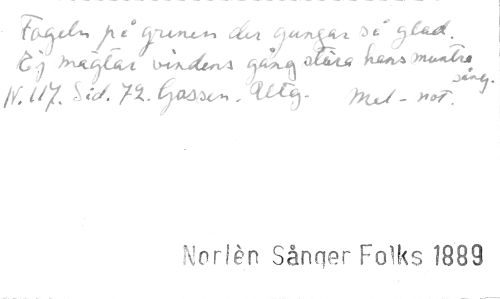 Fogeln på grenen der gungar så glad.
Ej mägtar vindens gång störa hans muntra
sång.
N. 117. Sid. 72. Gossen. Altg. Mel-not.
Norlèn Sånger Folks 1889